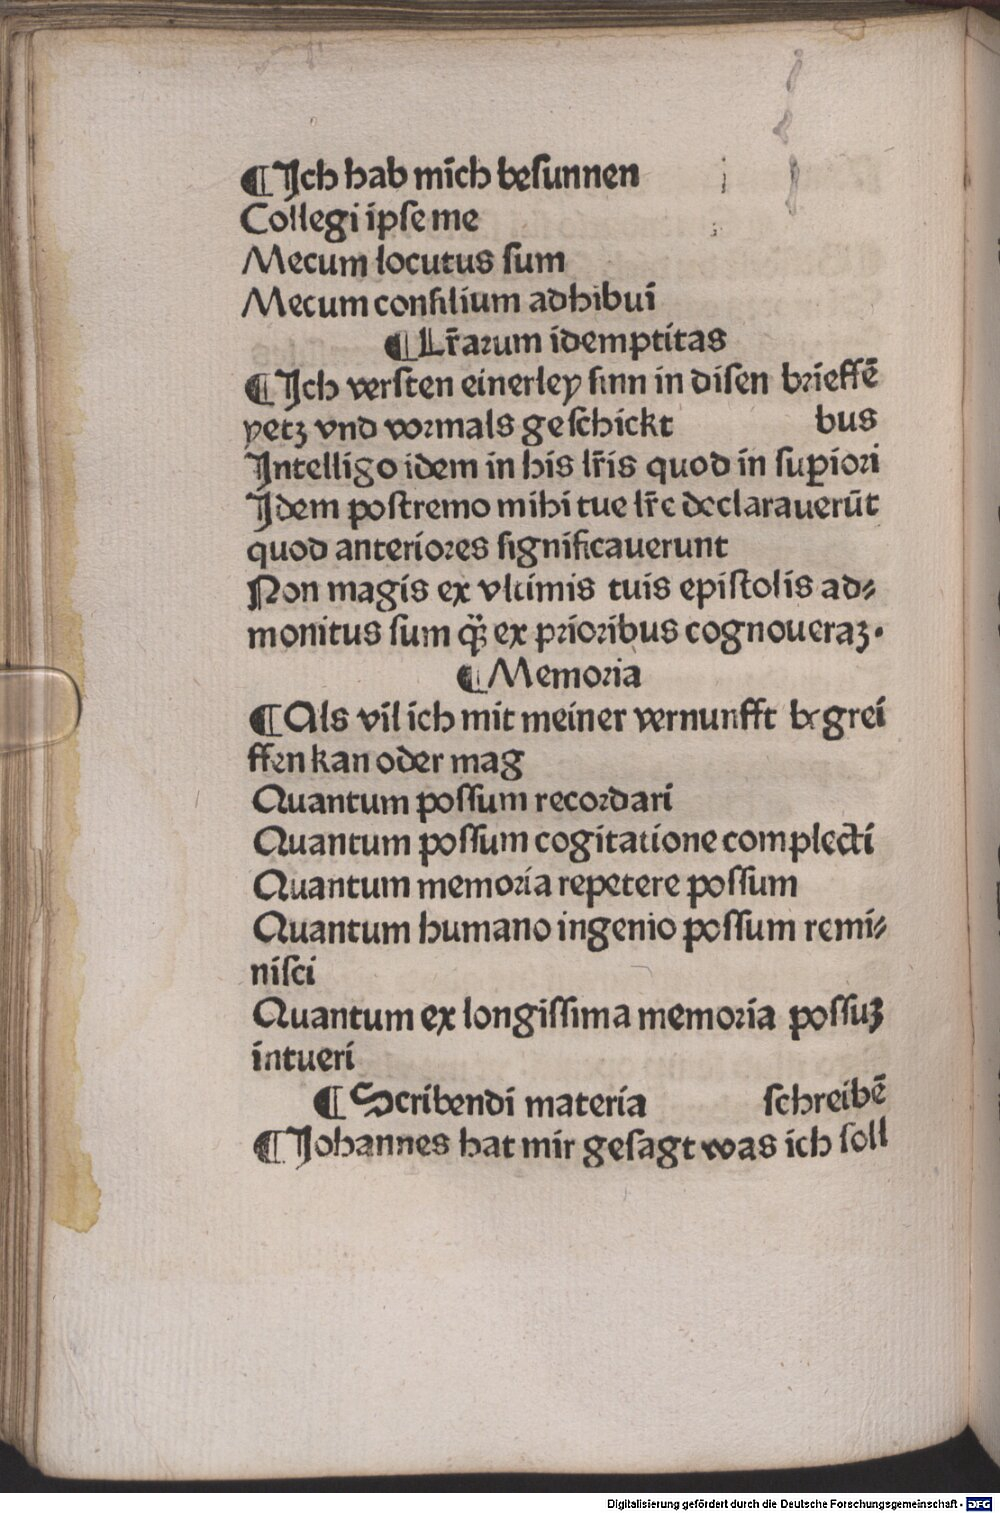 ¶ Ich hab mich besunnen
Collegi ipse me
Mecum locutus sum
Mecum consilium adhibui
¶ Lr̄arum idemptitas
¶ Ich versten einerley sinn in disen brieffē
yetz vnd vormals geschickt bus
Intelligo idem in his lr̄is quod in supiori
Idem postremo mihi tue lr̄e declarauerūt
quod anteriores significauerunt
Non magis ex vltimis tuis epistolis ad⸗
monitus sum q̈ꝫ ex prioribus cognoueraꝫ.
¶ Memoria
¶ Als vil ich mit meiner vernunfft begrei
ffen kan oder mag
Quantum possum recordari
Quantum possum cogitatione complecti
Quantum memoria repetere possum
Quantum humano ingenio possum remi⸗
nisci
Quantum ex longissima memoria possuꝫ
intueri
¶ Scribendi materia schreibē
¶ Johannes hat mir gesagt was ich soll
Digitalisierung gefördert durch die Deutsche Forschungsgemeinschaft - DFG